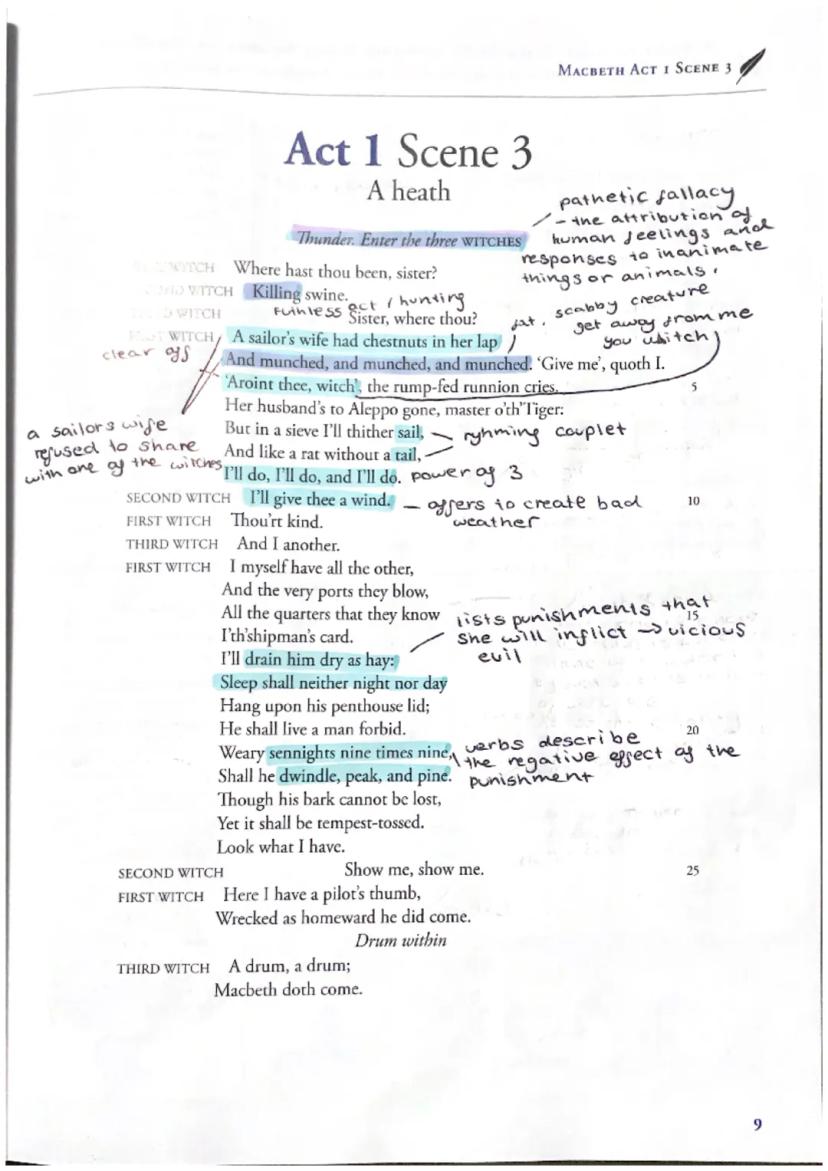 MACBETH ACT 1 SCENE 3
Act 1 Scene 3
A heath
pathetic fallacy
- the attribution of
human feelings and
responses to inanimate
things or animals.
Thunder. Enter the three WITCHES
WITCH Where hast thou been, sister?
WITCH Killing swine.
act / hunting
WITCH Sister, where thou?
fat, scabby creature
get away from me
you witch
WITCH A sailor's wife had chestnuts in her lap
clear off
And munched, and munched, and munched. 'Give me', quoth I.
'Aroint thee, witch', the rump-fed runnion cries. 5
Her husband's to Aleppo gone, master o'th'Tiger:
a sailors wife
refused to share
with one of the witches
But in a sieve I'll thither sail, - ryhming couplet
And like a rat without a tail,
I'll do, I'll do, and I'll do. power of 3
SECOND WITCH I'll give thee a wind. - offers to create bad 10
weather
FIRST WITCH Thou'rt kind.
THIRD WITCH And I another.
FIRST WITCH I myself have all the other,
And the very ports they blow,
All the quarters that they know 15
I'th'shipman's card.
lists punishments that
she will inflict → vicious
evil
I'll drain him dry as hay:
Sleep shall neither night nor day
Hang upon his penthouse lid;
He shall live a man forbid. 20
Weary sennights nine times nine,
Shall he dwindle, peak, and pine.
verbs describe
the negative effect of the
punishment
Though his bark cannot be lost,
Yet it shall be tempest-tossed.
Look what I have.
SECOND WITCH Show me, show me. 25
FIRST WITCH Here I have a pilot's thumb,
Wrecked as homeward he did come.
Drum within
THIRD WITCH A drum, a drum;
Macbeth doth come.
9